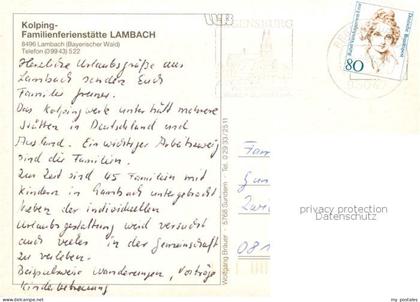 Kolping-
Familienferienstätte LAMBACH
8496 Lambach (Bayerischer Wald)
Telefon (09943) 522
Herzliche Urlaubsgrüße aus
Lambach senden Euch
Familie
Das Kolpingwerk unterhält mehrere
Stätten in Deutschland und
Ausland. Ein wichtiger Arbeitszweig
sind die Familien.
Zur Zeit sind 45 Familien mit
Kindern in Lambach untergebracht
Neben der individuellen
Urlaubsgestaltung wird versucht
auch vieles in der Gemeinschaft
zu erleben.
Beispielsweise Wanderungen, Vorträge
Kinderbetreuung
Wolfgang Brauer · 5768 Sundern · Tel. 0 29 33 / 25 11
REGENSBURG
80
Fam
081
privacy protection
Datenschutz